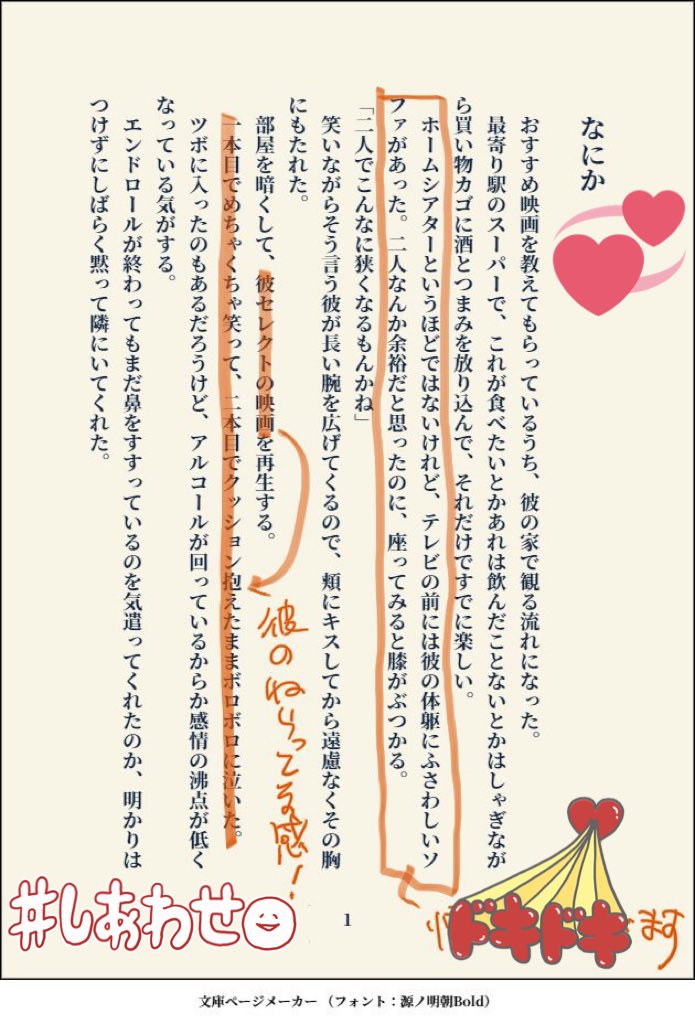 なにか
おすすめ映画を教えてもらっているうち、彼の家で観る流れになった。
最寄り駅のスーパーで、これが食べたいとかあれは飲んだことないとかはしゃぎなが
ら買い物カゴに酒とつまみを放り込んで、それだけですでに楽しい。
ホームシアターというほどではないけれど、テレビの前には彼の体躯にふさわしいソ
ファがあった。二人なんか余裕だと思ったのに、座ってみると膝がぶつかる。
「二人でこんなに狭くなるもんかね」
笑いながらそう言う彼が長い腕を広げてくるので、頬にキスしてから遠慮なくその胸
にもたれた。
部屋を暗くして、彼セレクトの映画を再生する。
一本目でめちゃくちゃ笑って、二本目でクッション抱えたままボロボロに泣いた。
ツボに入ったのもあるだろうけど、アルコールが回っているからか感情の沸点が低く
なっている気がする。
エンドロールが終わってもまだ鼻をすすっているのを気遣ってくれたのか、明かりは
つけずにしばらく黙って隣にいてくれた。
彼のねらってる感!
ドキドキ
ます
#しあわせ
1
文庫ページメーカー（フォント：源ノ明朝Bold）